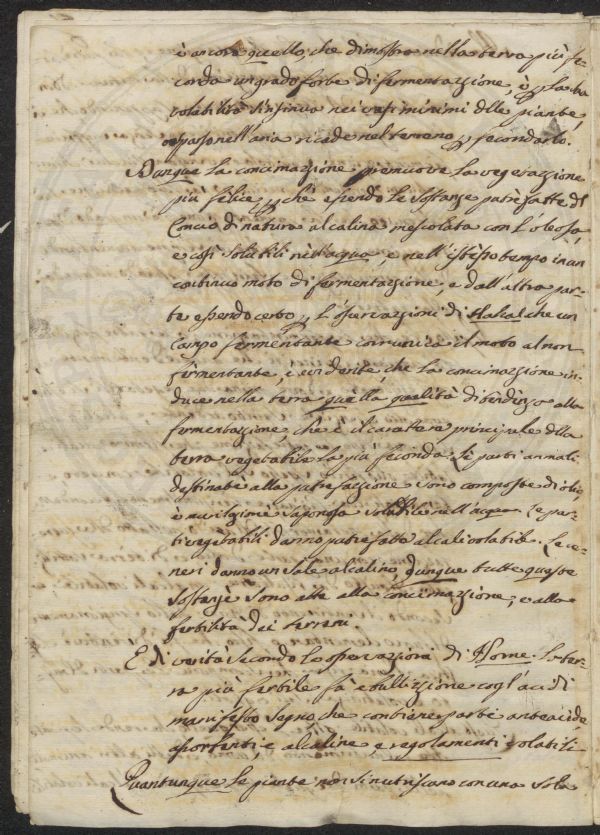 è ancora quello, che dimostra nella terra più fe-
conda un grado forte di fermentazione, e la
volatilità s'insinua nei vasi minimi delle piante,
o sparso nell'aria ricade nel terreno p fecondarlo.
Dunque la concimazione promuove la vegetazione
più felice p chè essendo le sostanze putrefatte del
Concio di natura alcalina mescolata con l'oleosa,
e così solubili nell'acqua, e nell'istesso tempo in un
continuo moto di fermentazione, e dall'altra par-
te essendo certo p l'osservazioni di che un
Campo fermentante comunica il moto al non
fermentante, è evidente, che la concimazione in-
duce nella terra quella qualità di tendenza alla
fermentazione, che è il carattere principale della
terra vegetabile la più feconda. Le parti animali
destinate alla putrefazione sono composte di olio,
e saponosa solubile nell'acqua. Le par-
ti vegetabili danno putrefatte alcali volatile. Le ce-
neri danno un sale alcalino, dunque tutte queste
sostanze sono atte alla concimazione, e alla
fertilità dei terreni.
E di verità secondo le osservazioni di Home la ter-
ra più fertile fà ebullizione cogl'acidi
manifesto segno che contiene parti anteacide,
assorbenti, e alcaline e regolamenti volatili
Quantunque le piante non si nutriscano con una sola